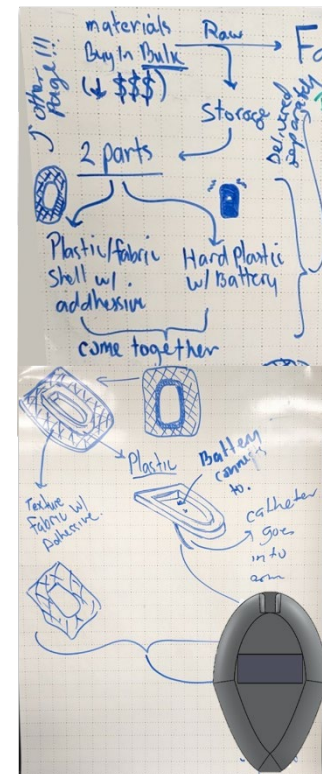 materials
Buy In Bulk
(↓ $$$)
Raw
↑ other Page!!!
Storage
Delivered
Separately
2 parts
Plastic/fabric
Shell w/
addhessive
Hard Plastic
w/ Battery
come together
Plastic
Battery
connects
to.
Texture
fabric w/
Adhessive.
catheter
goes
into
arm